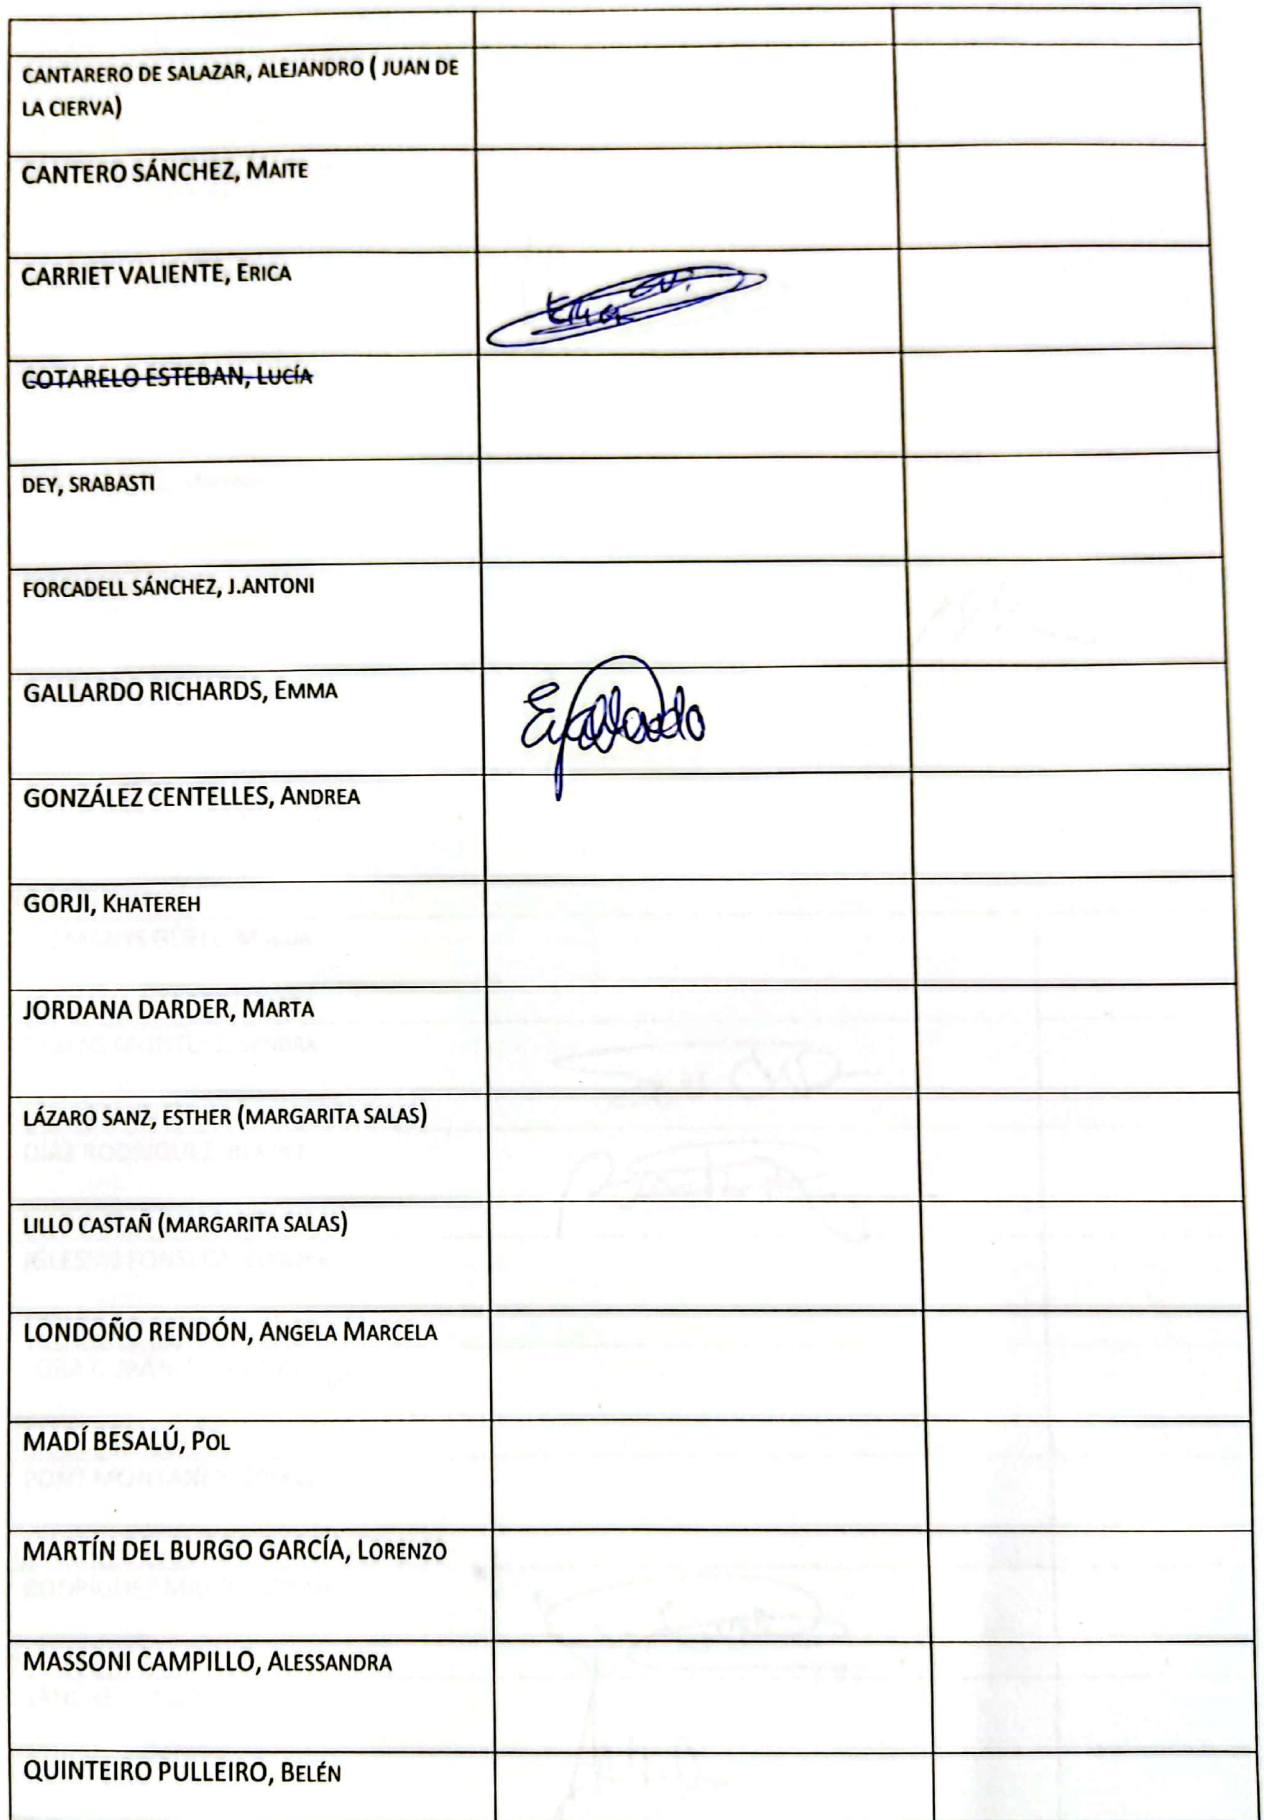 CANTARERO DE SALAZAR, ALEJANDRO ( JUAN DE
LA CIERVA)
CANTERO SÁNCHEZ, MAITE
CARRIET VALIENTE, ERICA
COTARELO ESTEBAN, LUCÍA
DEY, SRABASTI
FORCADELL SÁNCHEZ, J.ANTONI
GALLARDO RICHARDS, EMMA
GONZÁLEZ CENTELLES, ANDREA
GORJI, KHATEREH
JORDANA DARDER, MARTA
LÁZARO SANZ, ESTHER (MARGARITA SALAS)
LILLO CASTAÑ (MARGARITA SALAS)
LONDOÑO RENDÓN, ANGELA MARCELA
MADÍ BESALÚ, POL
MARTÍN DEL BURGO GARCÍA, LORENZO
MASSONI CAMPILLO, ALESSANDRA
QUINTEIRO PULLEIRO, BELÉN